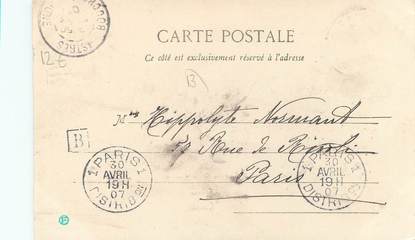 CARTE POSTALE
Ce côté est exclusivement réservé à l'adresse
12 €
B
Hippolyte Normant
Rue de Rivoli
Paris
B
PARIS 1
30
AVRIL
19H
07
DISTRIBON
PARIS 1
30
AVRIL
19H
07
DISTRI